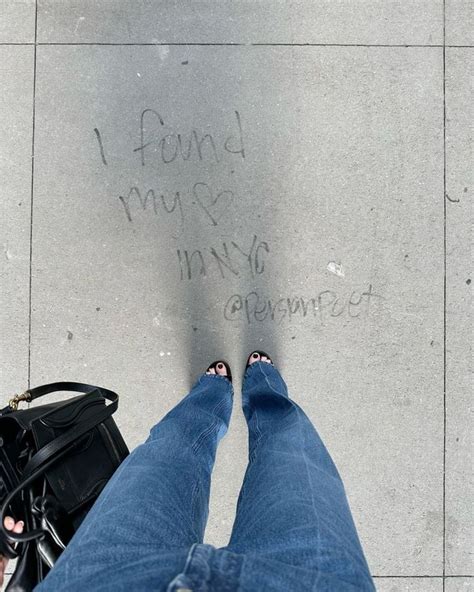 I found
my ♡
in NYC
@PersianPoet